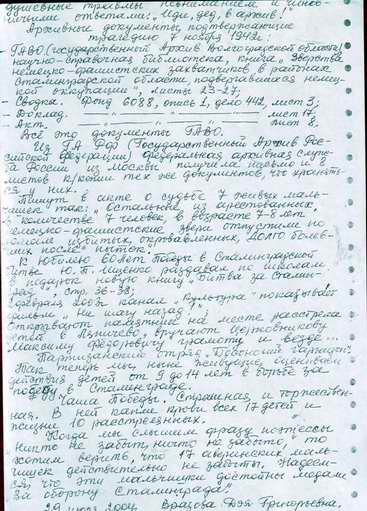 душевные травмы невниманием и чино-
ничьими ответами: „Иди, дед, в архив!"
Архивные документы, подтверждающие
трагедию 7 ноября 1942г.:
- ГАВО (государственный Архив Волгоградской области)
научно-справочная библиотека, книга „Зверства
немецко-фашистских захватчиков в районах
Сталинградской области, подвергавшихся немец-
кой оккупации", листы 23-27;
- Сводка. Фонд 6088, опись 1, дело 442, лист 3;
- Доклад. лист 17;
- Акт. лист 8.
Всё это документы ГАВО.
Из ГА РФ (Государственный Архив Рос-
сийской Федерации) федеральная архивная служ-
ба России из Москвы получила письмо и 8
листов копий тех же документов, что хранятся
у них.
Пишут в акте о судьбе 7 живых маль-
чишек так: „Остальных из арестованных
в количестве 7 человек, в возрасте 7-8 лет
немецко-фашистские звери отпустили по
домам избитых, окровавленных, долго болев-
ших после пыток".
К юбилею 60 лет победы в Сталинградской
битве Ю.П. Ищенко раздавал по школам
в подарок новую книгу „Битва за Сталин-
град", стр. 36-38.
февраля 2003 канал „Культура" показывает
фильм „Ни шагу назад",
Открывают памятник на месте расстрела
детей в Аверино, вручают Церковникову
Максиму Фёдоровичу грамоту и везде...
Партизанский отряд „Босоногий гарнизон".
Так теперь мы, ныне живущие, оцениваем
действия детей от 9 до 14 лет в борьбе за
победу в Сталинграде.
Чаша Победы. Страшная и торжествен-
ная. В ней капли крови всех 17 детей и
жизни 10 расстрелянных.
Когда мы слышим фразу поэтессы
„Никто не забыт, ничто не забыто", то
хотим верить, что 17 аверинских маль-
чишек действительно не забыты. Надеем-
ся, что эти мальчишки достойны медали
„За оборону Сталинграда".
29 2004 Григорьевна.